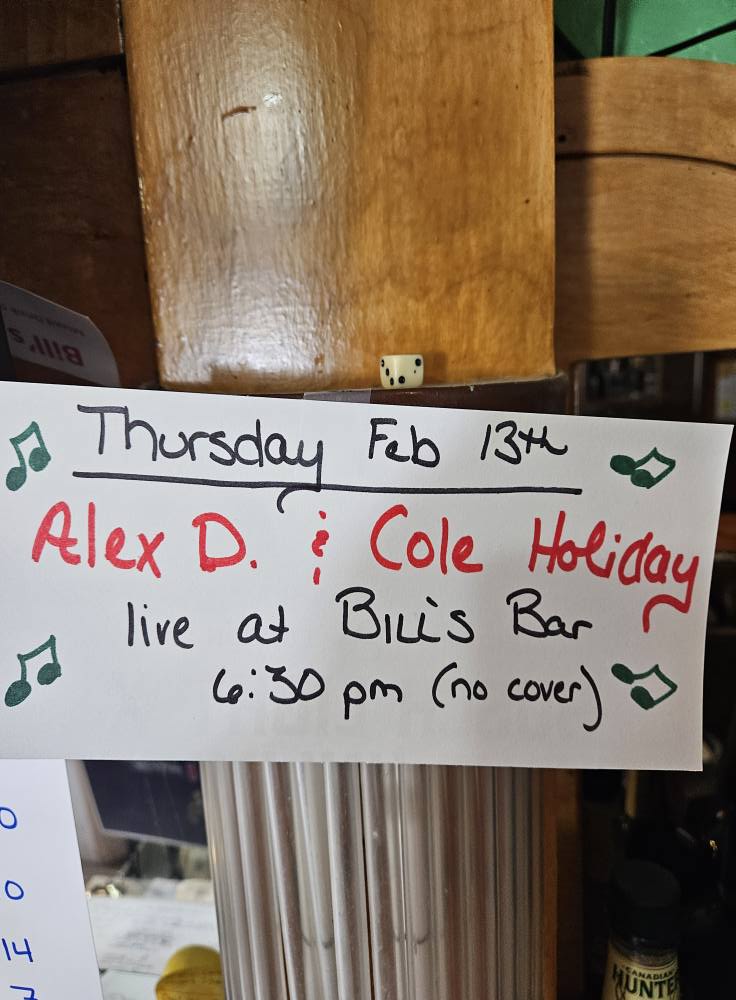 Bill's
Thursday Feb 13th
Alex D. & Cole Holiday
live at Bill's Bar
6:30 pm (no cover)
0
0
14
7
CANADIAN
HUNTE